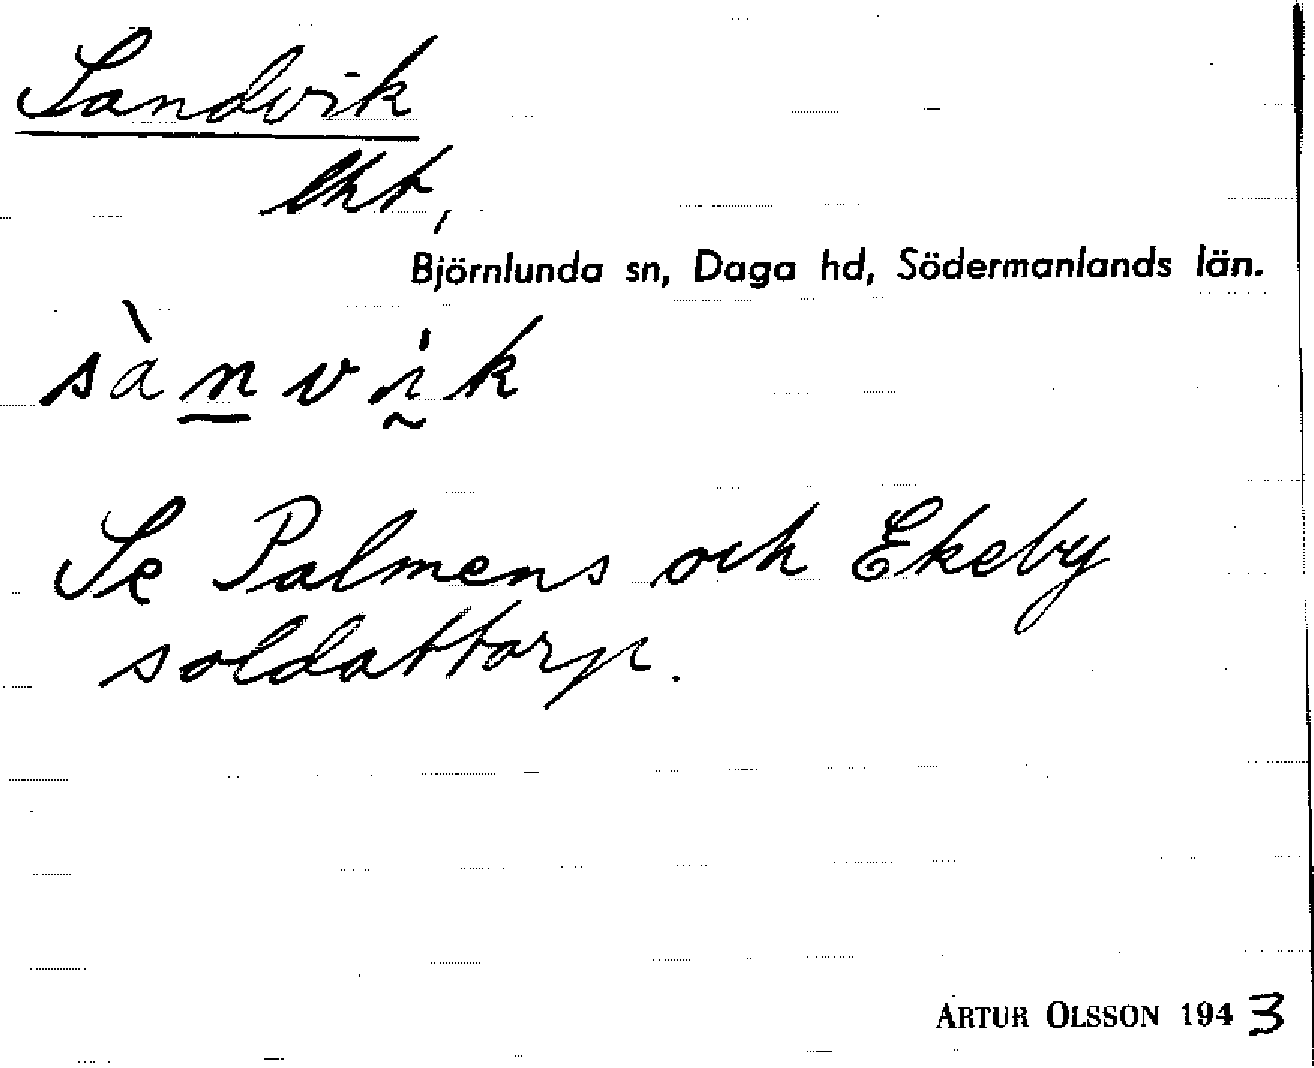 Sandvik
lht,
Björnlunda sn, Daga hd, Södermanlands län.
sànvik
Se Palmens och Ekeby
soldattorp.
ARTUR OLSSON 1943